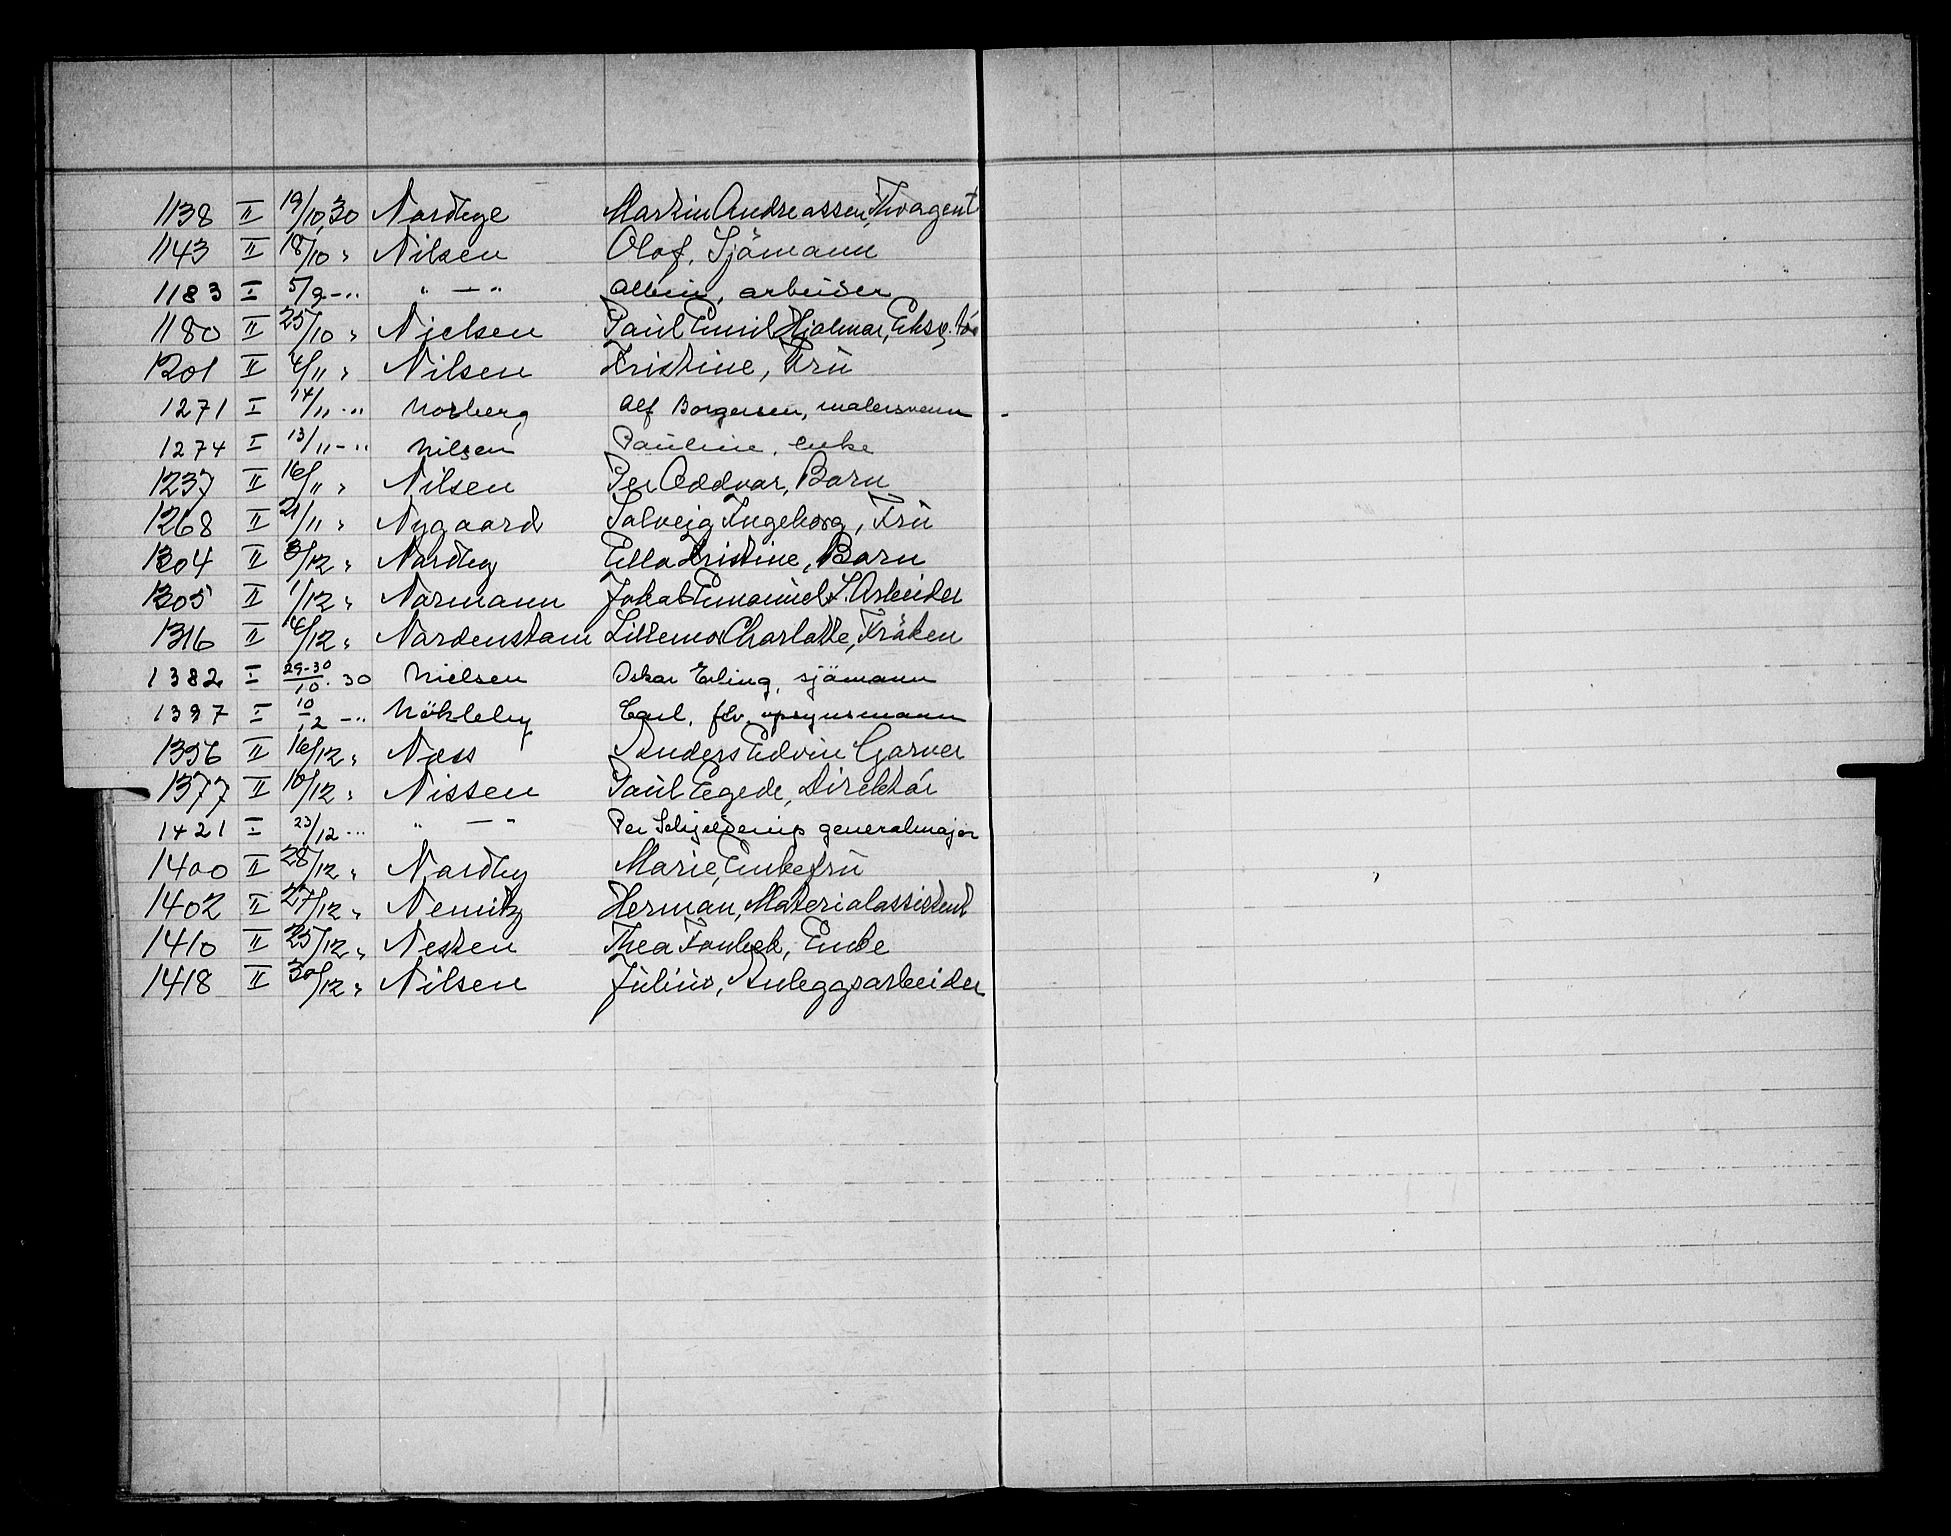 1138 II 19/10.30 Nordbye Martin Andreassen,
1143 II 18/10 " Nilsen Olaf, Sjömann
1183 I 5/9 - " " — " Albin, arbeider
1180 II 25/10 " Nielsen Paul Emil Hjalmar,
1201 II 4/11 " Nilsen Kristine, Fru
1271 I 14/11 - " Norberg Alf Borgersen, malersvenn
1274 I 13/11 - " Nilsen Pauline, enke
1237 II 16/11 " Nilsen Per Oddvar, Barn
1268 II 21/11 " Nygaard Solveig Ingeborg, Fru
1304 II 3/12 " Nordby Ella Kristine, Barn
1305 II 1/12 " Normann Jakob Emanuel S. Arbeider
1316 II 4/12 " Nordenstam Lillemor Charlotte, Fröken
1382 I 29-30/10. 30 Nielsen Oskar Erling, sjömann
1397 I 10/12 - " Nökleby Carl, fhv. opsynsmann
1356 II 16/12 " Ness Anders Edvin Garver
1377 II 10/12 " Nissen Paul Egede, Direktör
1421 I 23/12 - " " — " Per Schjelderup generalmajor
1400 II 28/12 " Nordby Marie, Enkefru
1402 II 27/12 " Nemitz Herman, Materialassistent
1410 II 25/12 " Nesten Thea Enke
1418 II 30/12 " Nilsen Julius, Anleggsarbeider